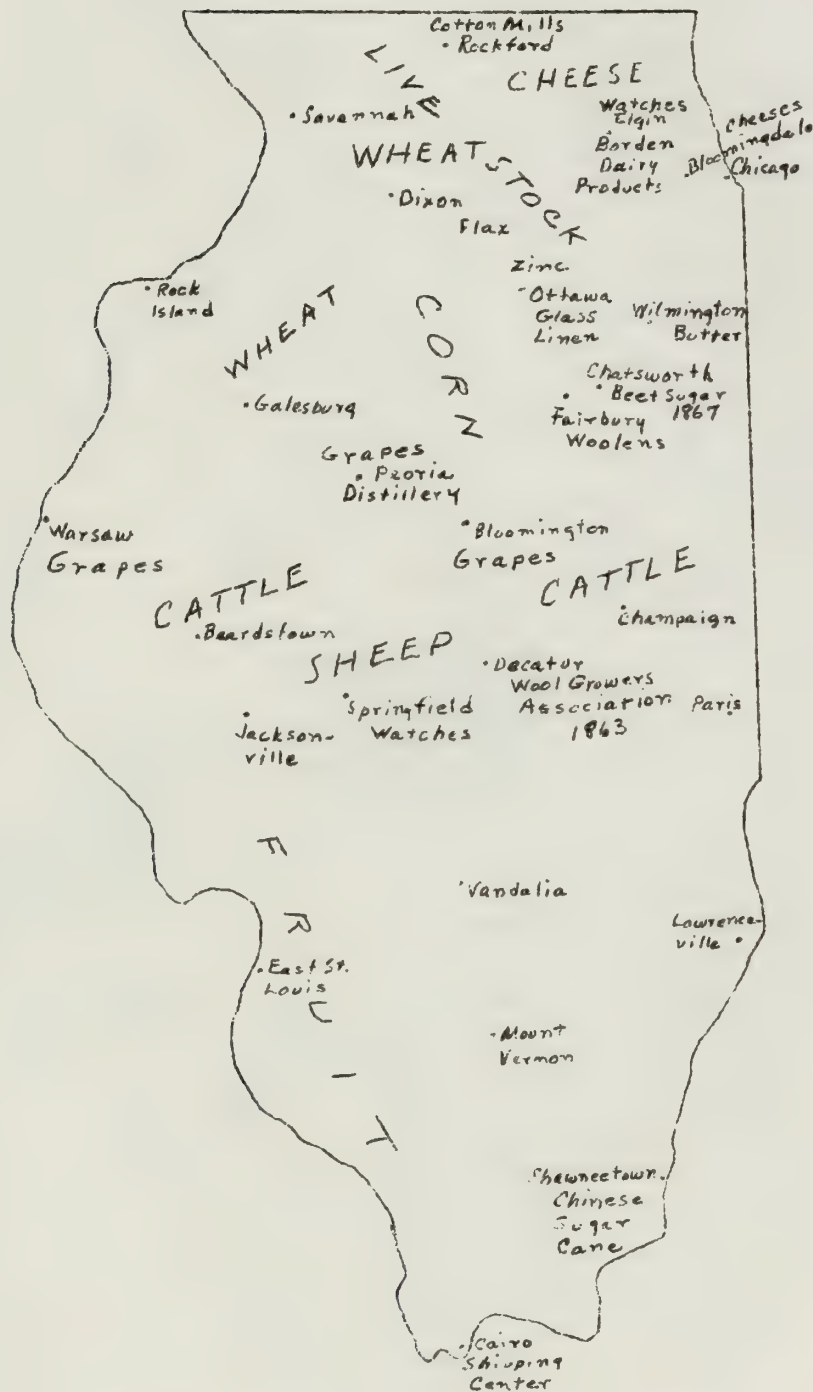 Cotton Mills
Rockford
LIVE STOCK
CHEESE
Savannah
Watches
Elgin
Borden
Dairy
Products
Cheeses
Bloomingdale
Chicago
WHEAT
Dixon
Flax
Zinc
Rock
Island
Ottawa
Glass
Linen
Wilmington
Butter
WHEAT
CORN
Chatsworth
Beet Sugar
1867
Galesburg
Fairbury
Woolens
Grapes
Peoria
Distillery
Warsaw
Grapes
Bloomington
Grapes
CATTLE
CATTLE
Beardstown
Champaign
SHEEP
Decatur
Wool Growers
Association
1863
Paris
Springfield
Watches
Jackson-
ville
FRUIT
Vandalia
Lawrence-
ville
East St.
Louis
Mount
Vernon
Shawneetown
Chinese
Sugar
Cane
Cairo
Shipping
Center